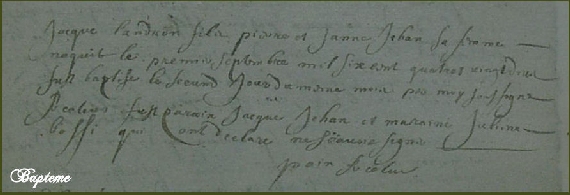 Jacque Landron fils pierre et janne Jehan sa frame
naquit le premier septembre mil six cent quatres vingt dix
fust baptise le second jour du meme mois par moy soussigne
fust parain Jacque Jehan et maraine Juliene
bossi qui ont declare ne scavoir signe
Bapteme